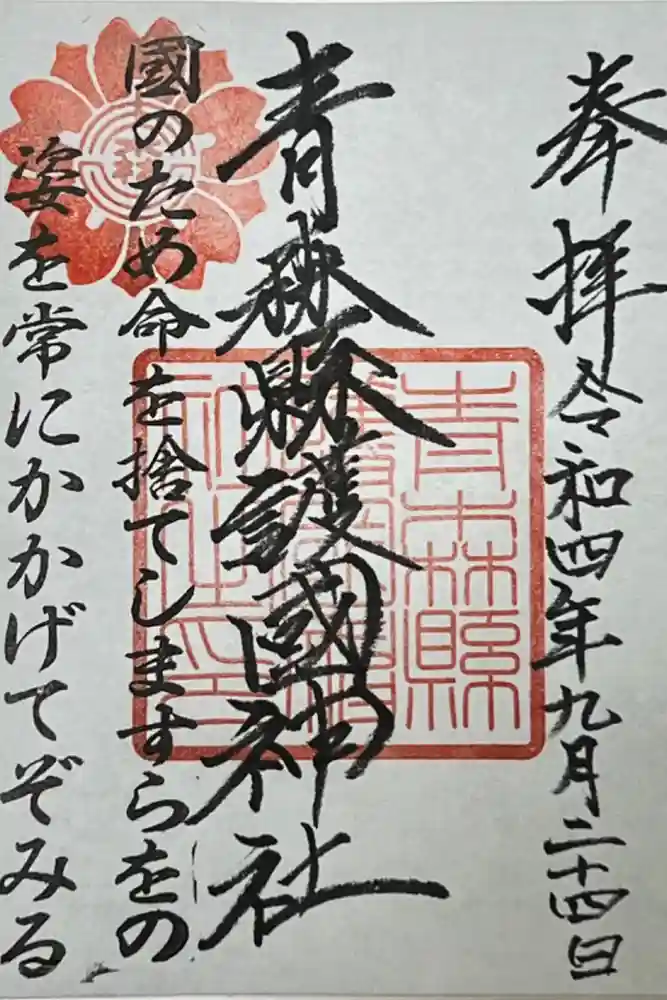 奉拝 令和四年九月二十四日
青森縣護國神社
國のため命を捨てしますらをの
姿を常にかかげてぞみる
青森縣
護國神
社之印